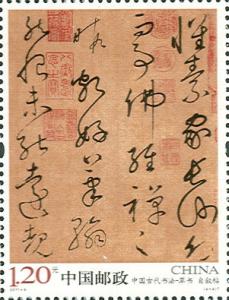 懷素家長沙幼而
事佛經禪之
暇頗好筆翰
然恨未能遠覩
CHINA
1.20元 中国邮政 中国古代书法-草书 自叙帖